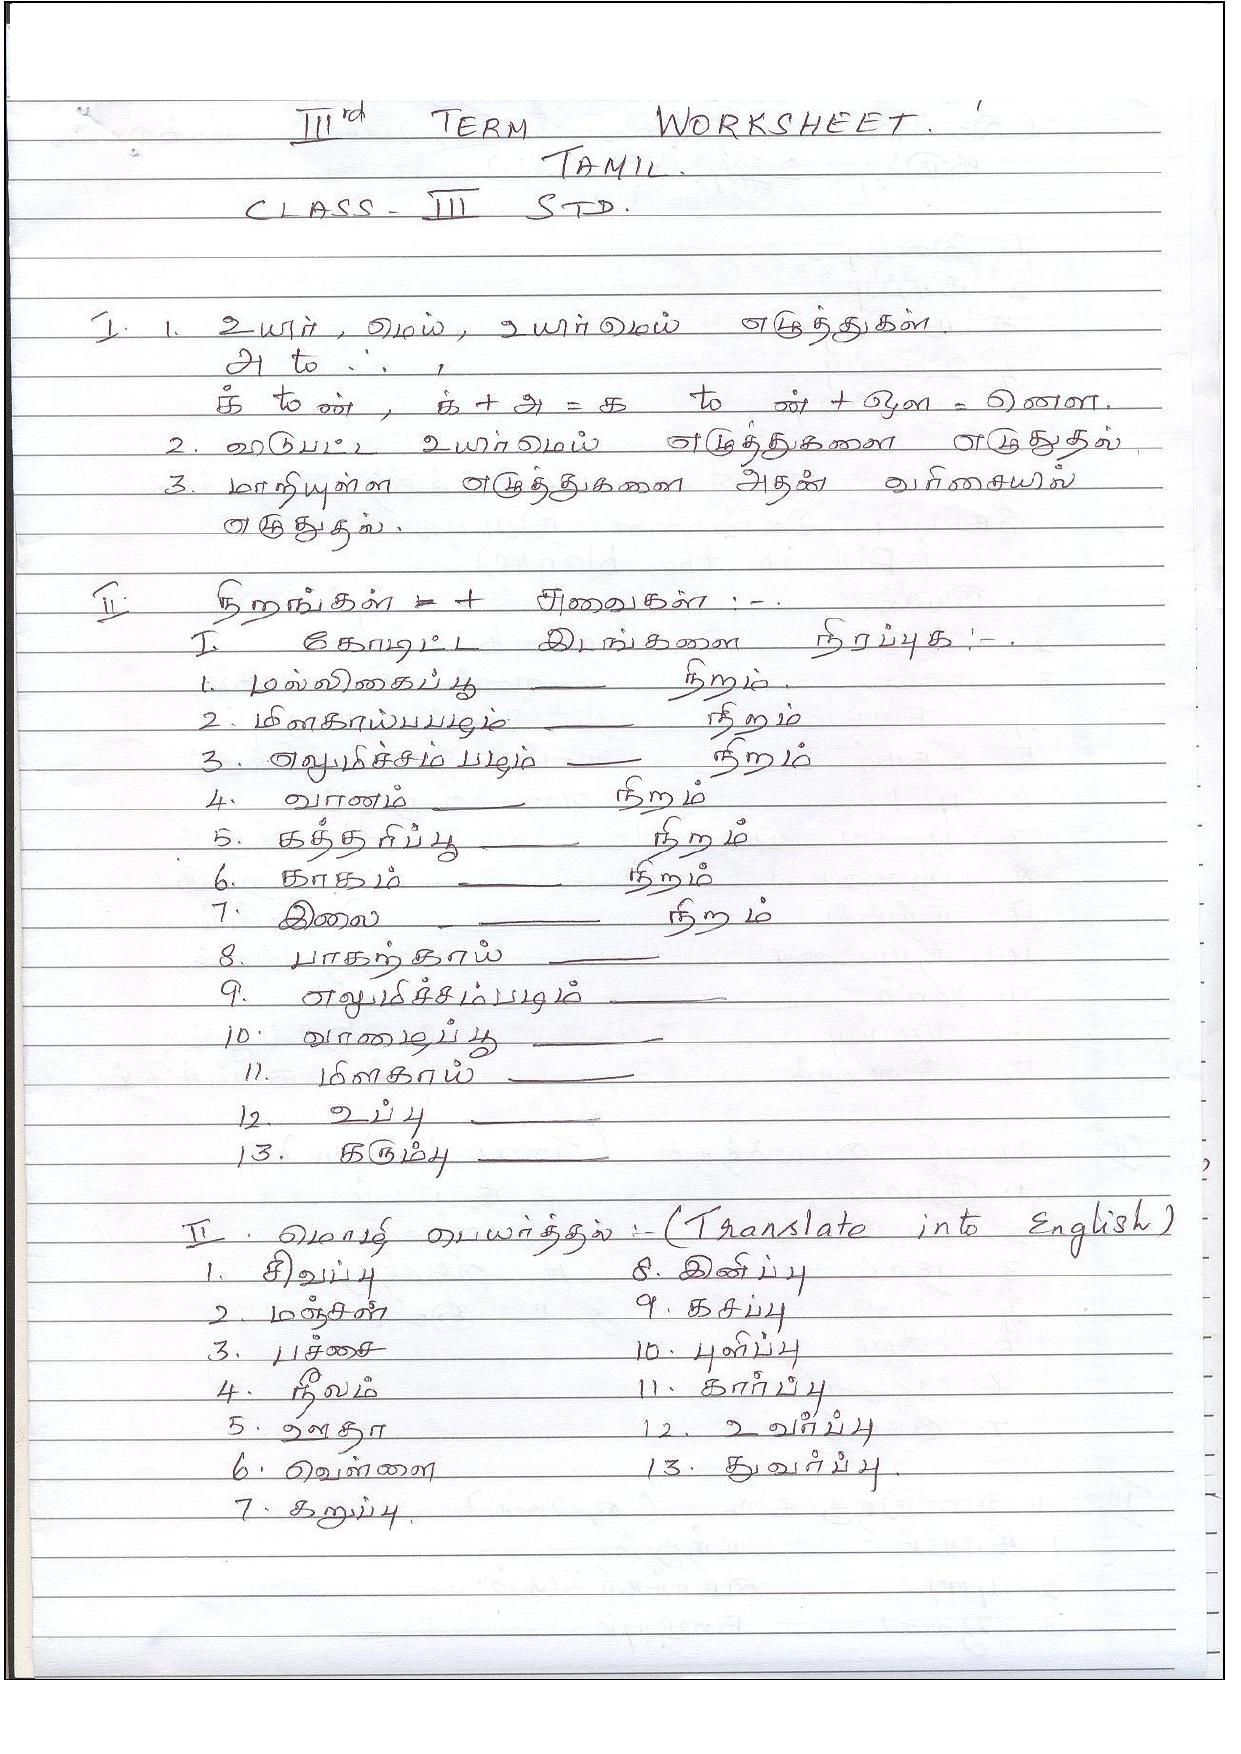 IIIrd TERM WORKSHEET.
TAMIL.
CLASS - III STD.
I. 1. உயிர், மெய், உயிர்மெய் எழுத்துகள்.
அ to ஃ,
க் to ன், க் + அ = க to ன் + ஔ = னௌ.
2. விடுபட்ட உயிர்மெய் எழுத்துகளை எழுதுதல்.
3. மாறியுள்ள எழுத்துகளை அதன் வரிசையில்
எழுதுதல்.
II. நிறங்கள் + சுவைகள் :-.
I. கோடிட்ட இடங்களை நிரப்புக :-.
1. மல்லிகைப்பூ ____ நிறம்.
2. மிளகாய்பபழம் ____ நிறம்
3. எலுமிச்சம் பழம் ____ நிறம்
4. வானம் ____ நிறம்
5. கத்தரிப்பூ ____ நிறம்
6. காகம் ____ நிறம்
7. இலை ____ நிறம்
8. பாகற்காய் ____
9. எலுமிச்சம்பழம் ____
10. வாழைப்பூ ____
11. மிளகாய் ____
12. உப்பு ____
13. கரும்பு ____
II. மொழி பெயர்த்தல் :- (Translate into English)
1. சிவப்பு 8. இனிப்பு
2. மஞ்சள் 9. கசப்பு
3. பச்சை 10. புளிப்பு
4. நீலம் 11. கார்ப்பு
5. ஊதா 12. உவர்ப்பு
6. வெள்ளை 13. துவர்ப்பு.
7. கறுப்பு.